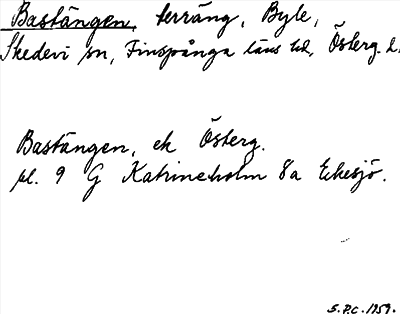 Bastängen, terräng, Byle,
Skedevi sn, Finspånga läns hd, Österg. l.
Bastängen, ek Österg.
bl. 9 G Katrineholm 8a Eksjö.
S.P.C. 1959.